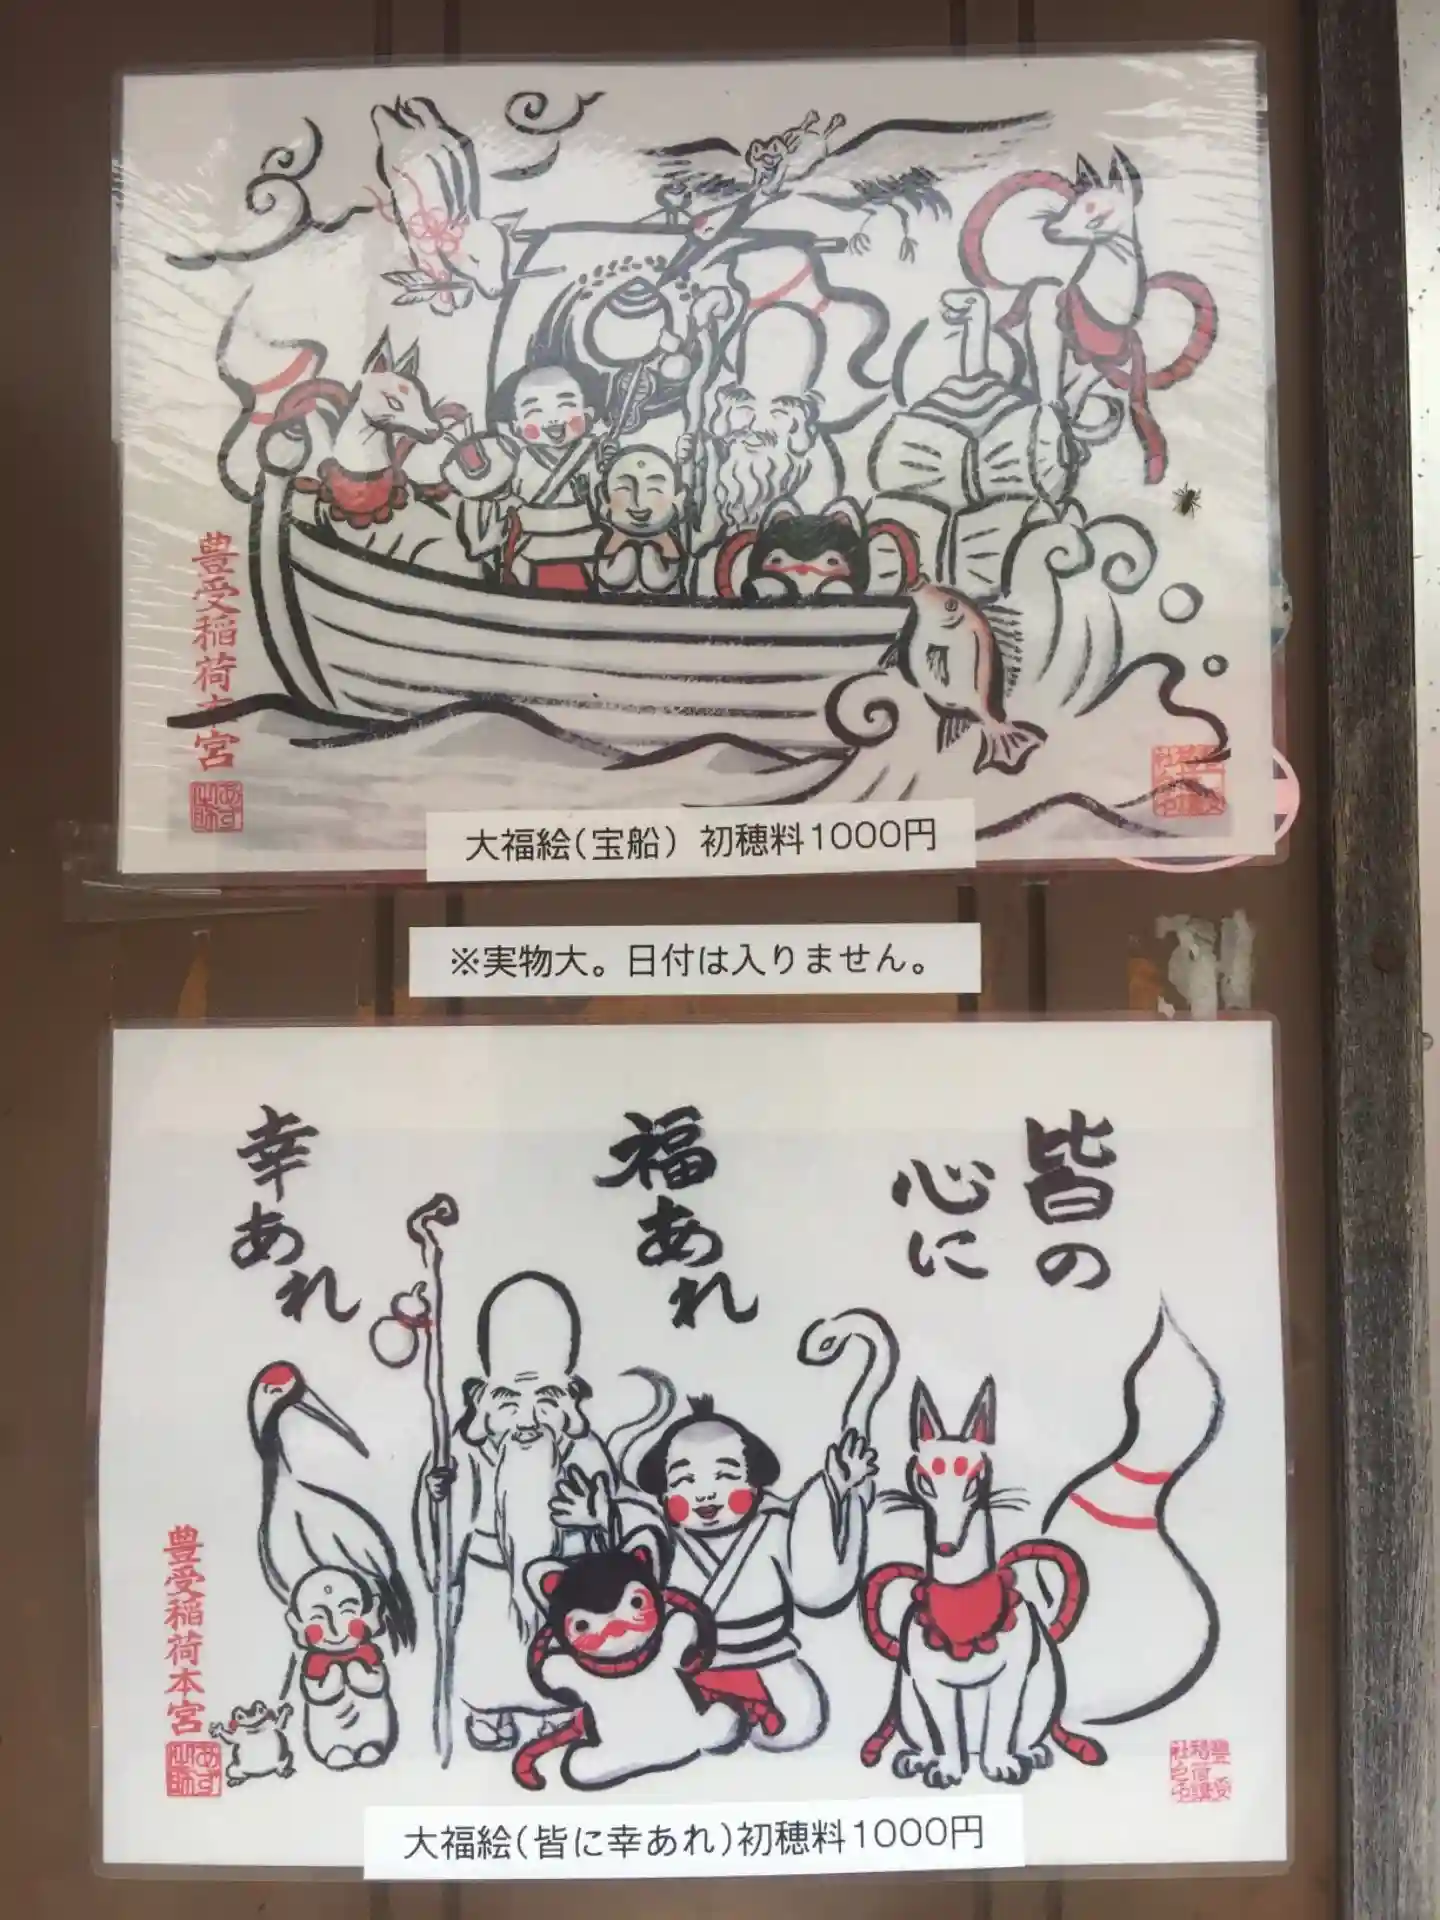 豊受稲荷本宮
大福絵(宝船) 初穂料1000円
※実物大。日付は入りません。
皆の
心に
福あれ
幸あれ
豊受稲荷本宮
大福絵(皆に幸あれ)初穂料1000円